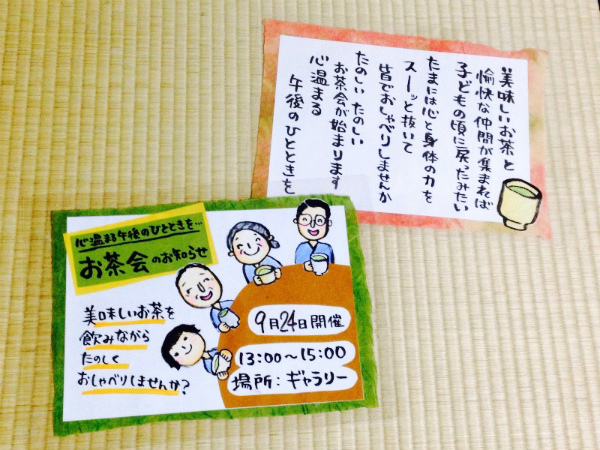 美味しいお茶と
愉快な仲間が集まれば
子どもの頃に戻ったみたい
たまには心と身体の力を
スーッと抜いて
皆でおしゃべりしませんか
たのしい たのしい
お茶会が始まります
心温まる
午後のひとときを
心温まる午後のひとときを…
お茶会のお知らせ
美味しいお茶を
飲みながら
たのしく
おしゃべりしませんか?
9月24日開催
13:00～15:00
場所：ギャラリー